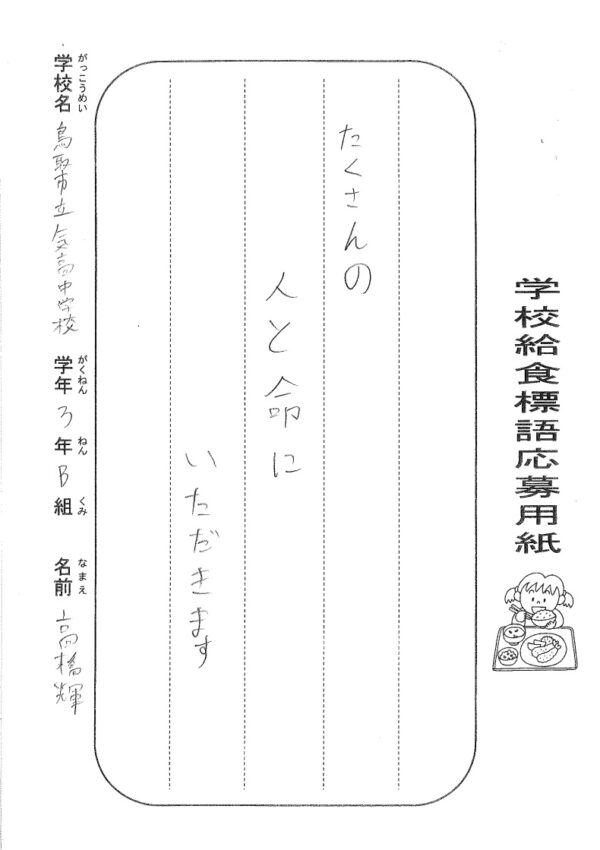 学校給食標語応募用紙
たくさんの
人と命に
いただきます
学校名 がっこうめい 鳥取市立気高中学校 学年 がくねん 3年 ねん B組 くみ 名前 なまえ 高橋輝